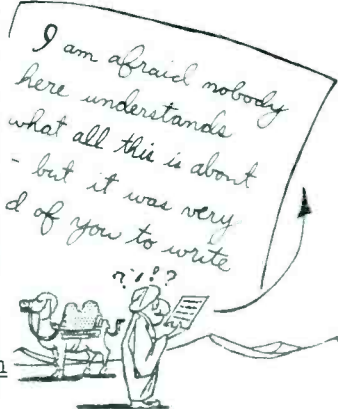 I am afraid nobody
here understands
what all this is about
- but it was very
d of you to write
? ! ! ?